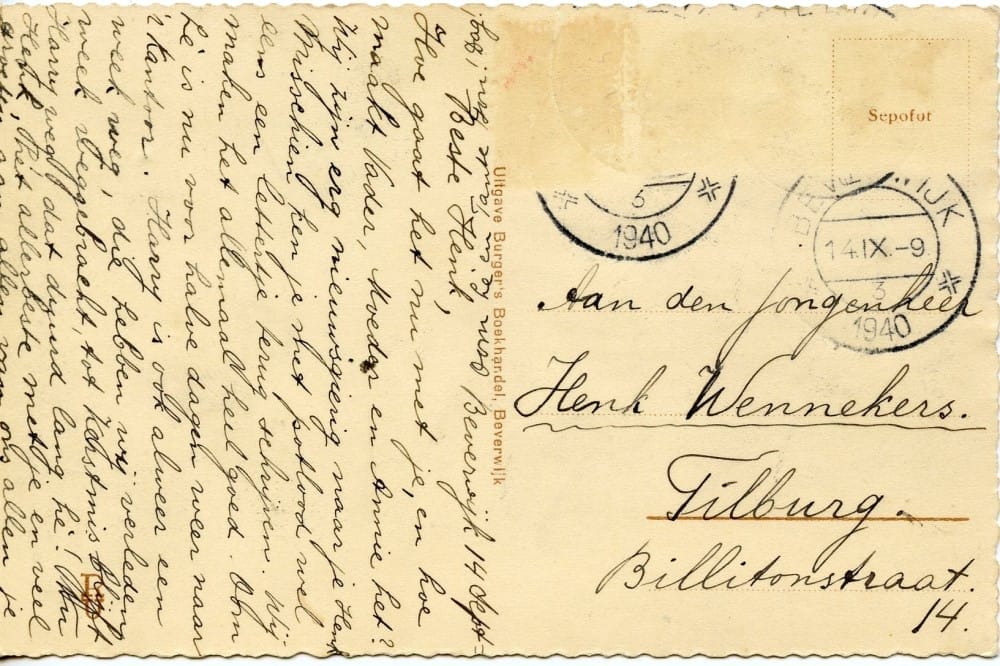 Beverwijk 14 Sept-
Beste Henk,
Hoe gaat het nu met je, en hoe
maakt Vader, Moeder en Annie het?
Wij zijn erg nieuwsgierig naar je Henk
Misschien ken je met potlood wel
eens een lettertje terug schrijven. Wij
maken het allemaal heel goed. Oom
Lé is nu voor halve dagen weer naar
't kantoor. Harry is ook alweer een
week weg, die hebben wij verleden
week weggebracht, tot Kerstmis blijft
Harry weg, dat duurd lang hé! Nu
Henk, het allerbeste met je en veel
groeten aan allen van ons allen je
Uitgave Burger's Boekhandel, Beverwijk
Sepofot
5
1940
WIJK
14.IX.-9
3
1940
Aan den Jongenheer
Henk Wennekers.
Tilburg.
Billitonstraat.
14.